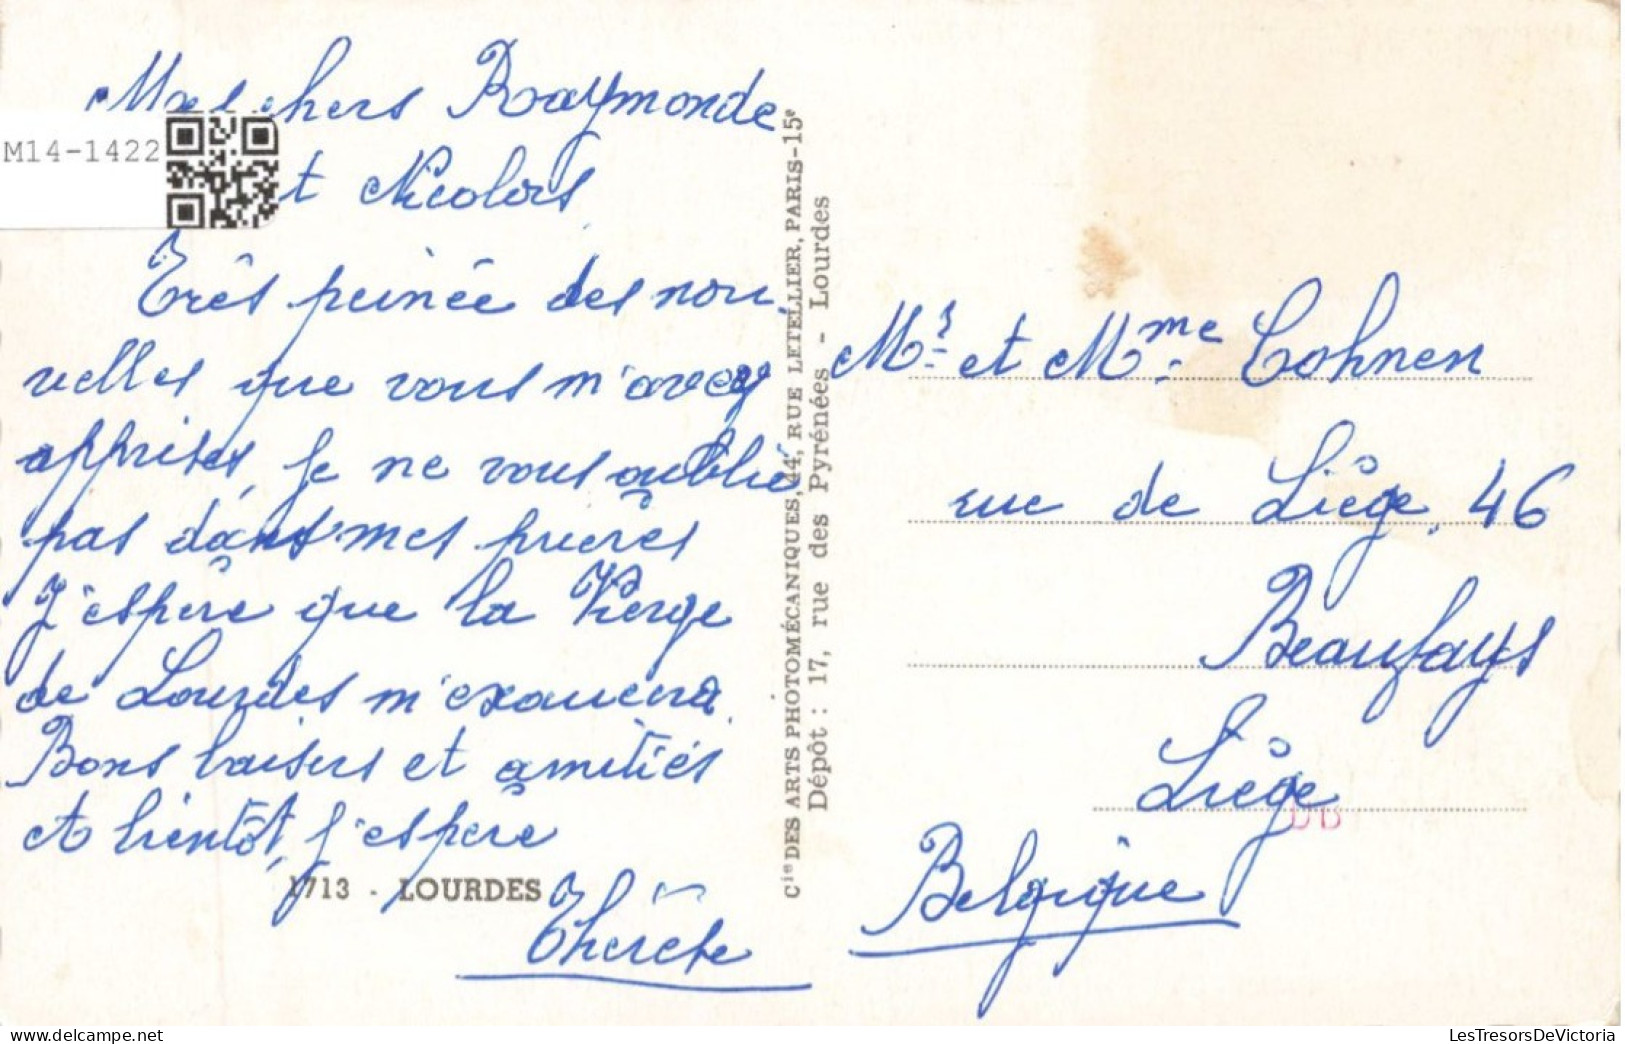 Mes chers Raymonde
M14-1422
t Nicolas
Très peinée des nou
velles que vous m'avez
apprises, je ne vous oublie
pas dans mes prières
J'espère que la Vierge
de Lourdes m'exaucera.
Bons baisers et amitiés
et A bientôt, j'espère
1713 - LOURDES
Thérèse
Cie DES ARTS PHOTOMÉCANIQUES, 44, RUE LETELLIER, PARIS-15e
Dépôt : 17, rue des Pyrénées - Lourdes
Mr et Mme Cohnen
rue de Liège, 46
Beaufays
Liège
Belgique
LesTresorsDeVictoria
website:delcampe.net